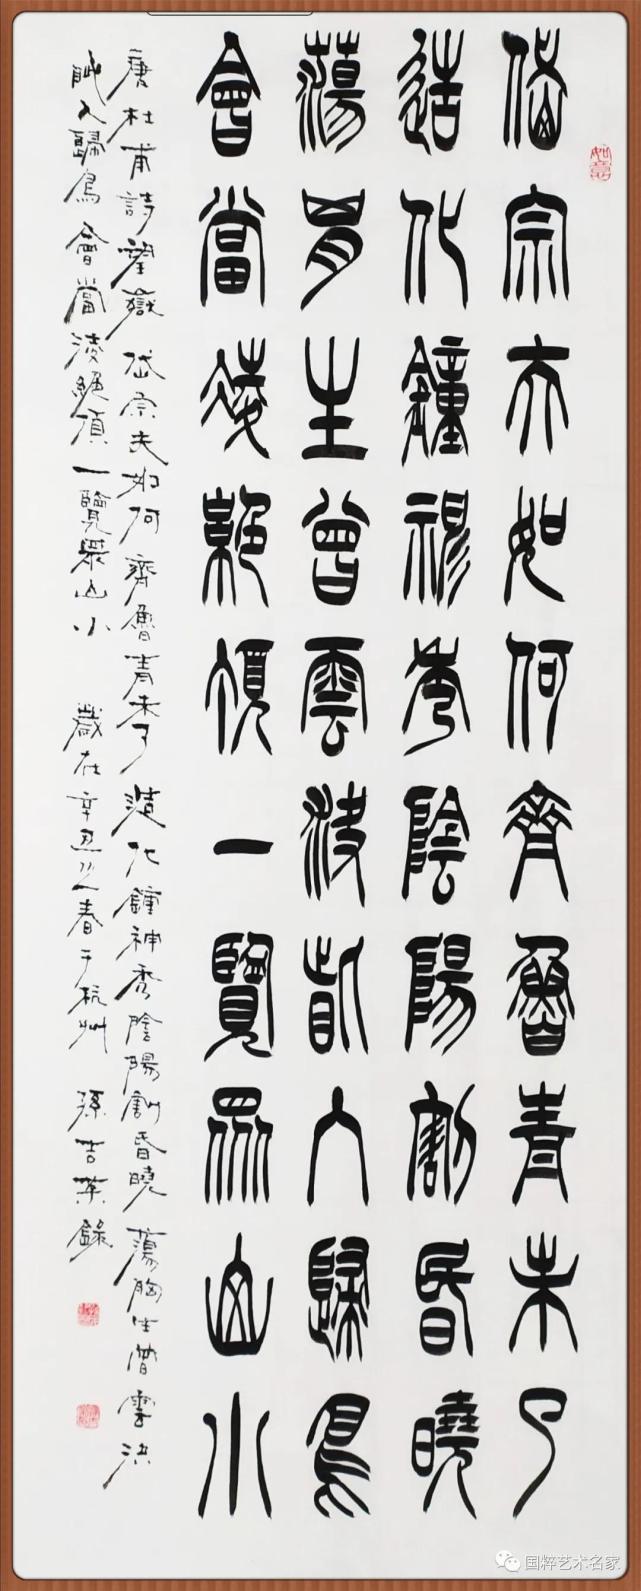 如意
岱宗夫如何齊魯青未了
造化鐘神秀陰陽割昏曉
蕩胸生曾雲決眥入歸鳥
會當凌絕頂一覽眾山小
唐杜甫詩望嶽 岱宗夫如何齊魯青未了 造化鐘神秀陰陽割昏曉 蕩胸生曾雲決
眥入歸鳥會當凌絕頂一覽眾山小 歲在辛丑之春于杭州 孫吉錄
国粹艺术名家